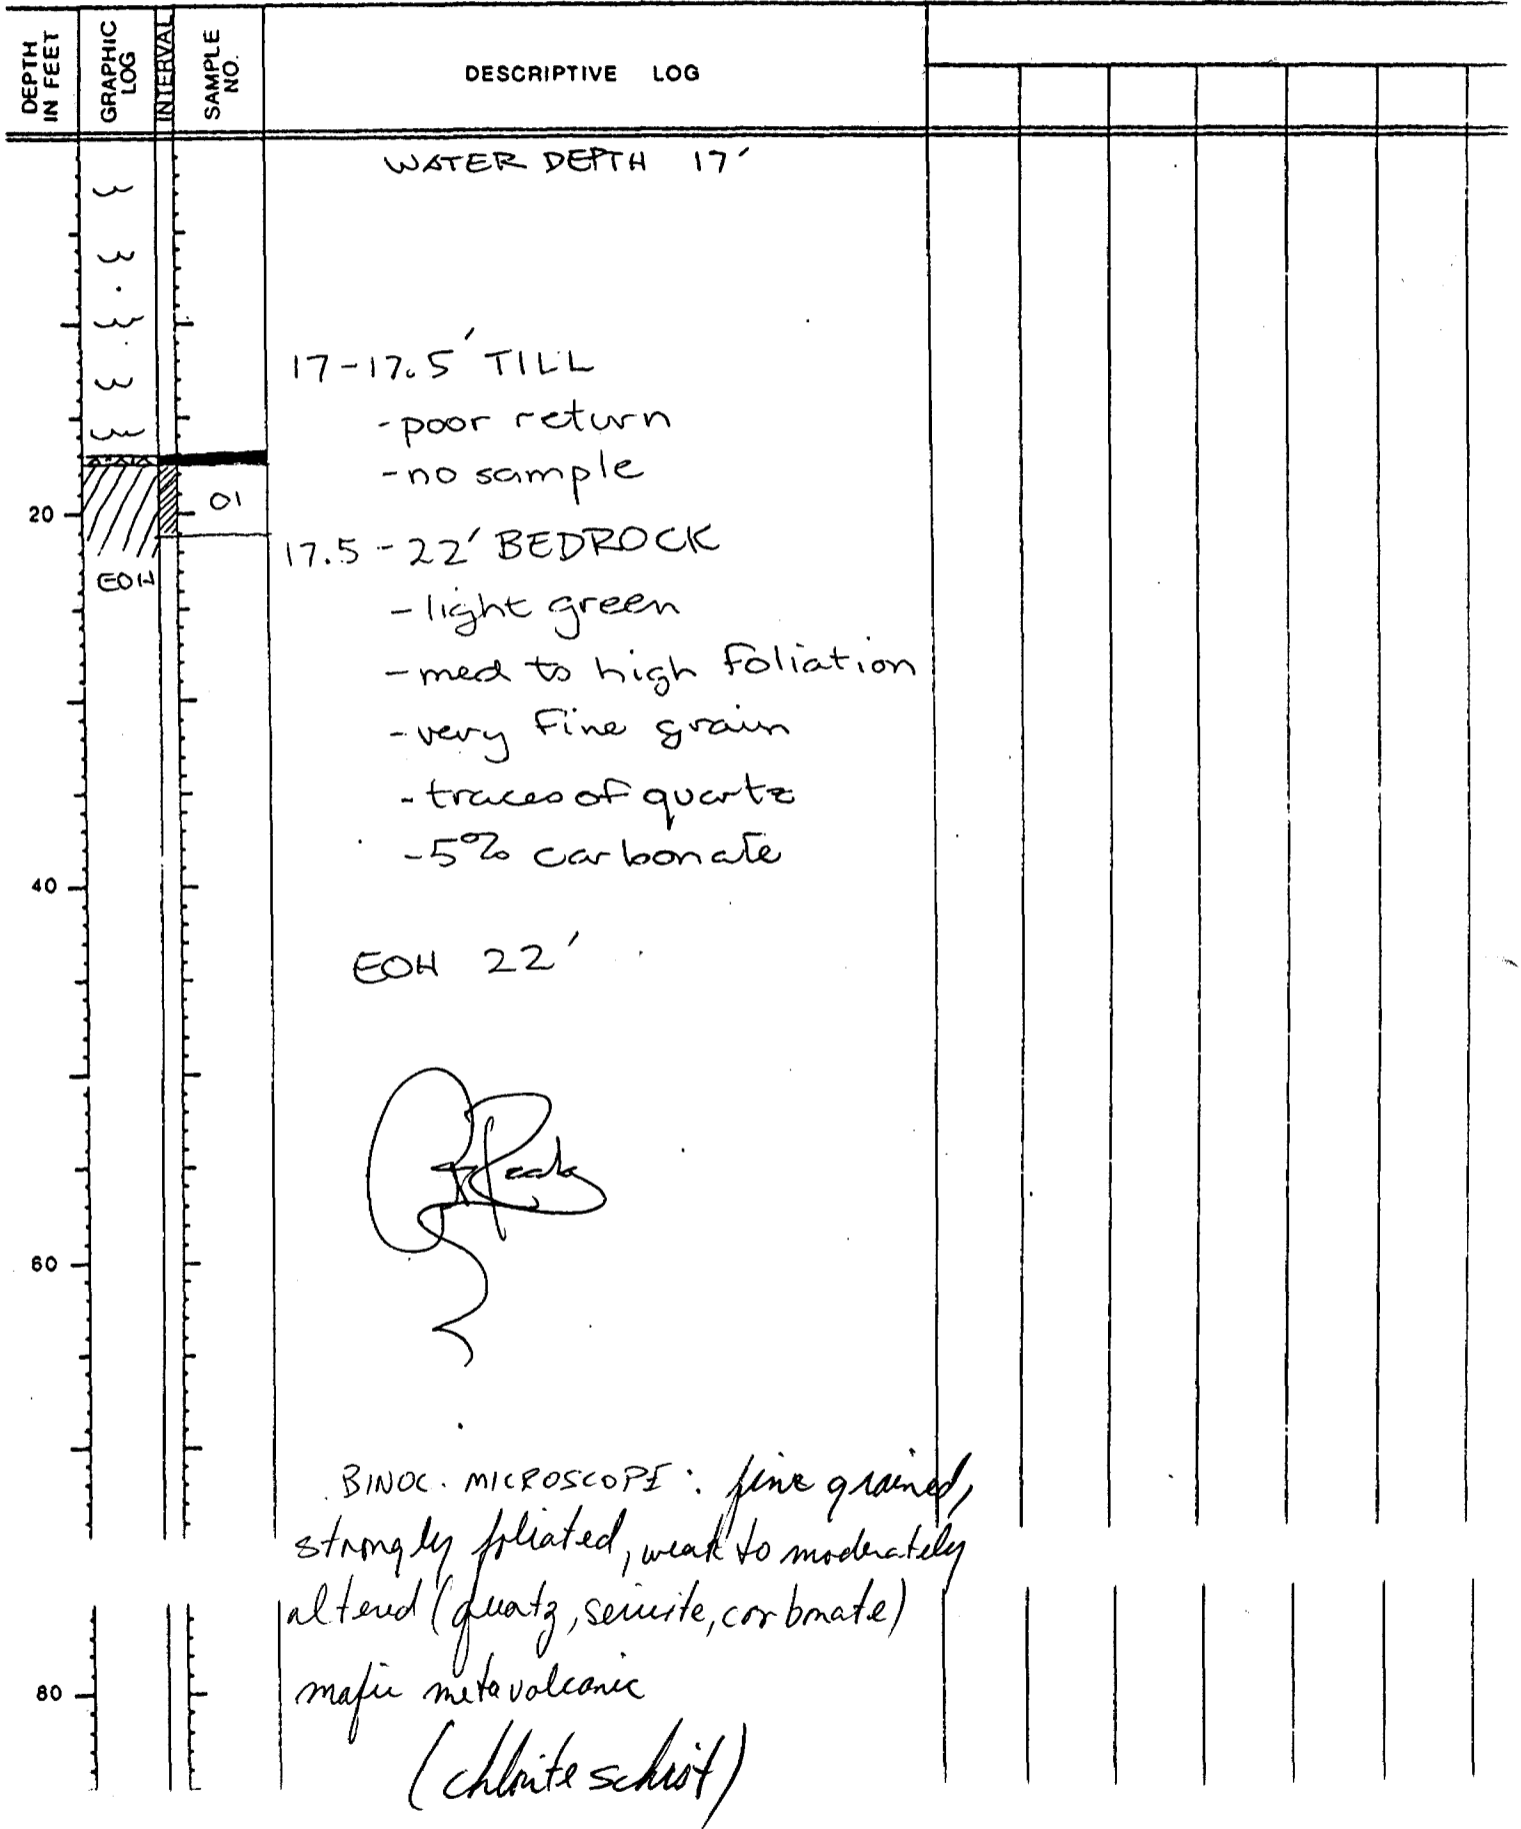 DEPTH IN FEET
GRAPHIC LOG
INTERVAL
SAMPLE NO.
DESCRIPTIVE LOG
WATER DEPTH 17'
17-17.5' TILL
-poor return
-no sample
01
20
17.5-22' BEDROCK
EOH
-light green
-med to high foliation
-very fine grain
-traces of quartz
-5% carbonate
40
EOH 22'
60
BINOC. MICROSCOPE: fine grained,
strongly foliated, weak to moderately
altered (quatz, sericite, carbonate)
80
mafic metavolcanic
(chlorite schist)